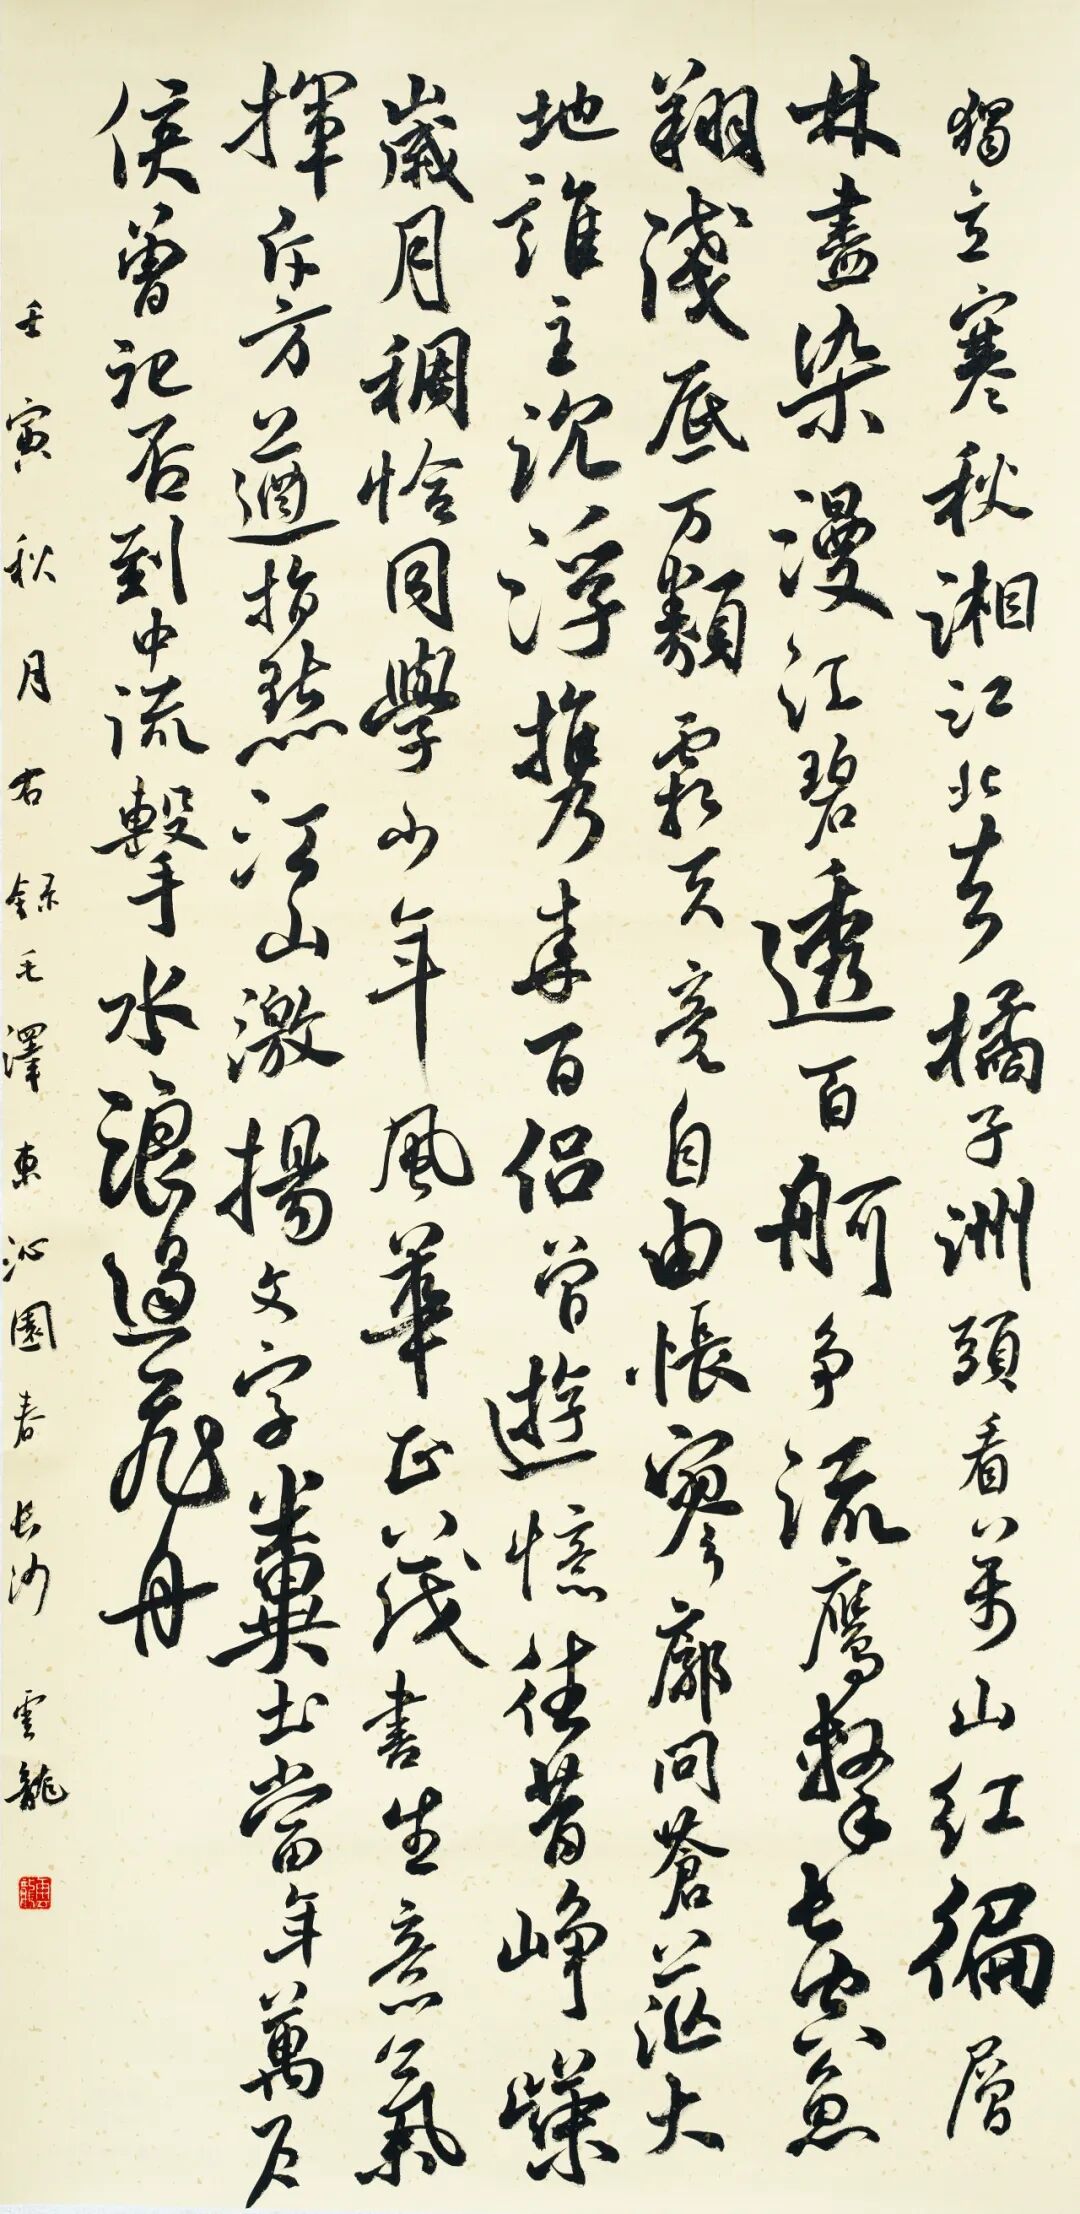 獨立寒秋湘江北去橘子洲頭看萬山紅徧層
林盡染漫江碧透百舸爭流鷹擊長空魚
翔淺底万類霜天竞自由悵寥廓問蒼茫大
地誰主沉浮攜来百侣曾遊憶往昔崢嶸
歲月稠恰同學少年風華正茂書生意氣
揮斥方遒指點江山激揚文字糞土當年萬户
侯曾记否到中流擊水浪遏飛舟
壬寅秋月右録毛澤東沁園春長沙 雲龍
雲龍